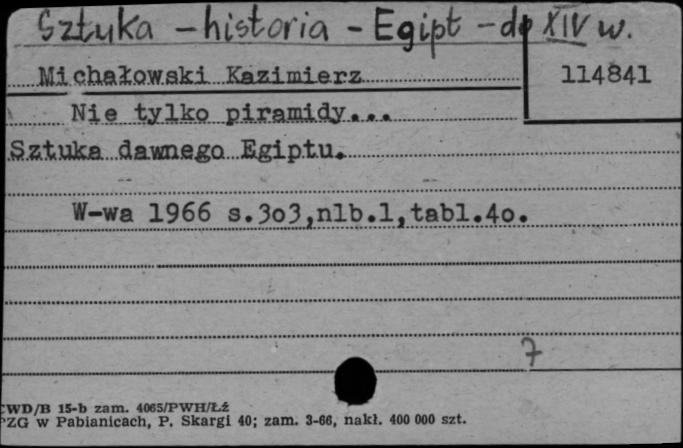 Sztuka - historia - Egipt - do XIV w.
Michałowski Kazimierz 114841
Nie tylko piramidy...
Sztuka dawnego Egiptu.
W-wa 1966 s.3o3,nlb.1,tabl.4o.
7
CWD/B 15-b zam. 4065/PWH/Łź
PZG w Pabianicach, P. Skargi 40; zam. 3-66, nakł. 400 000 szt.